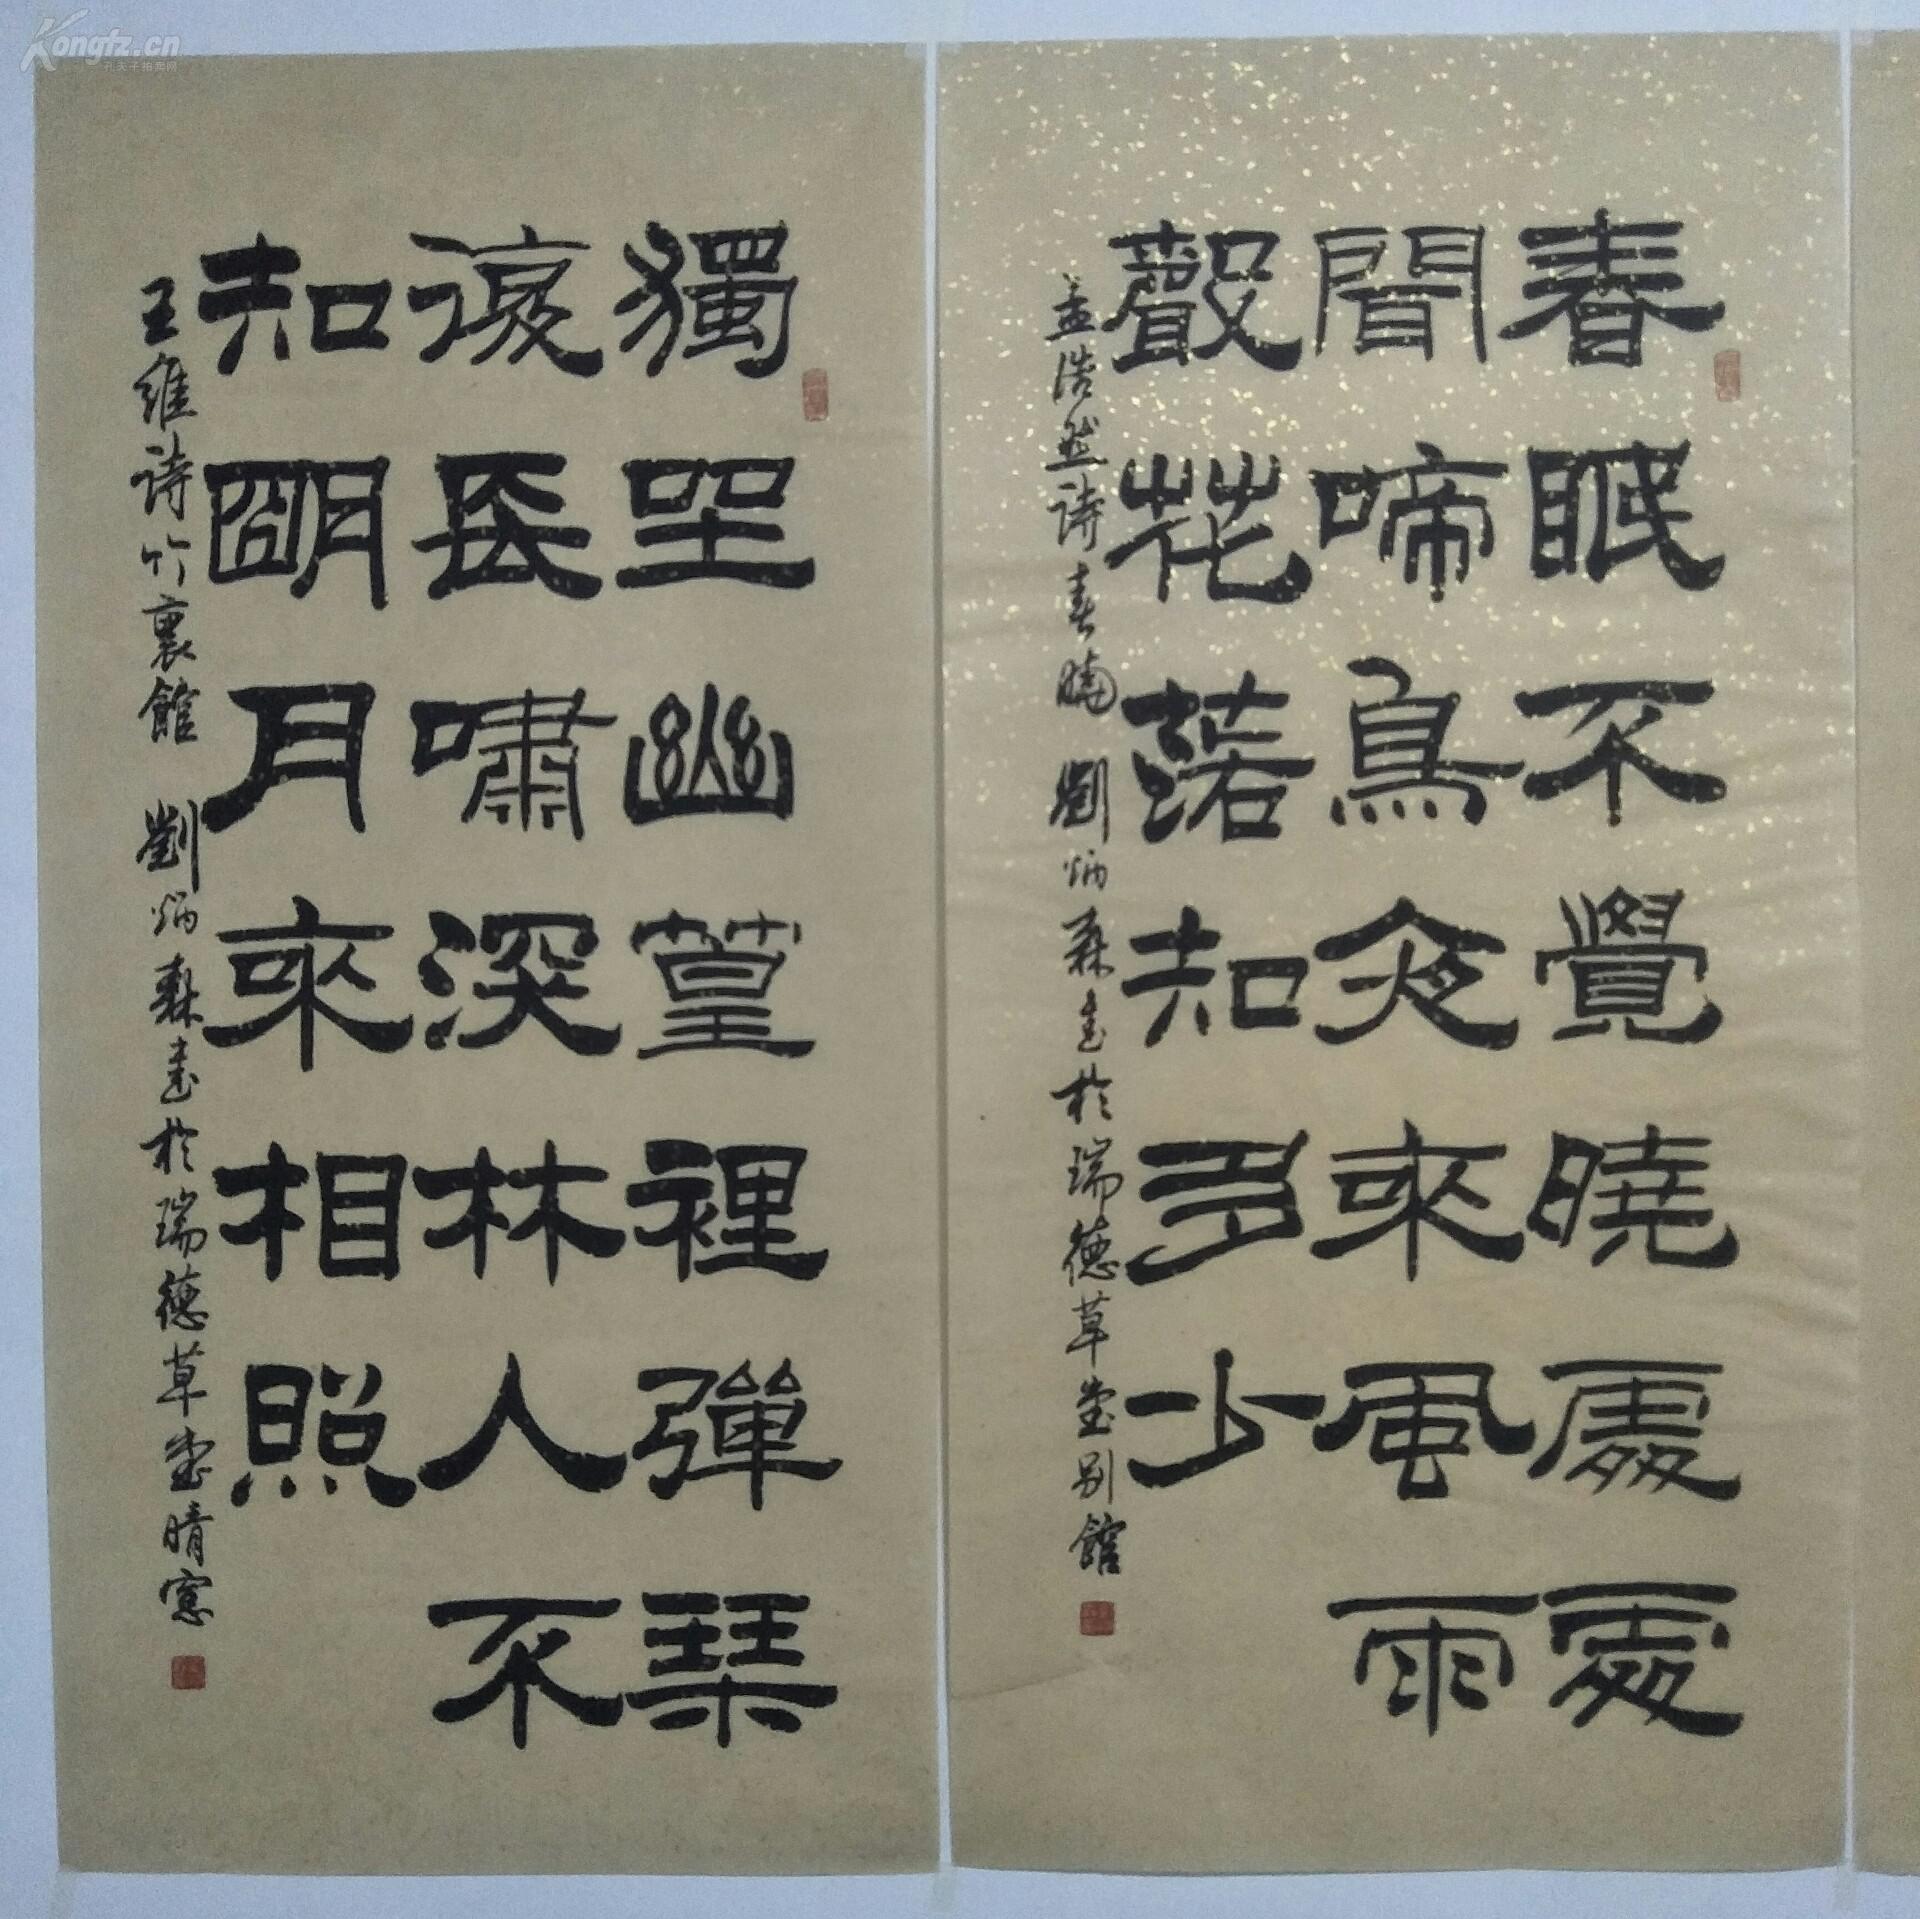 Kongfz.cn
孔夫子拍卖网
春眠不覺曉處處
聞啼鳥夜來風雨
聲花落知多少
孟浩然诗春曉 劉炳森書於瑞德草堂别館
獨坐幽篁裡彈琴
復長嘯深林人不
知明月來相照
王維诗竹裏館 劉炳森書於瑞德草堂晴窗